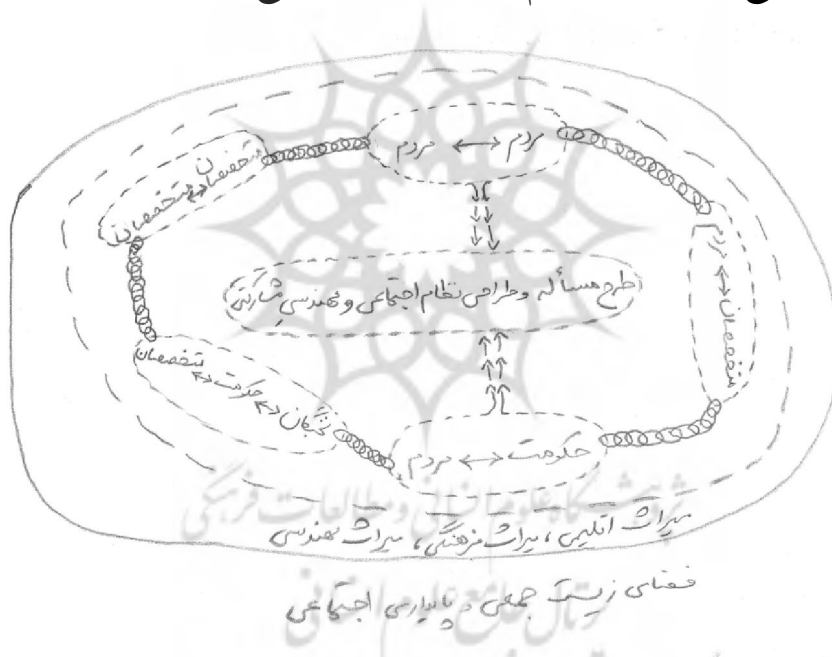 مردم ↔ مردم
متخصصان ↔ متخصصان
مردم ↔ متخصصان
طرح مسأله و طراحی نظام اجتماعی و مهندسی مشارکتی
نخبگان ↔ حکومت ↔ متخصصان
حکومت ↔ مردم
پژوهشگاه علوم انسانی و مطالعات فرهنگی
میراث اقلیمی، میراث فرهنگی، میراث مهندسی
فضای زیست جمعی و پایداری اجتماعی
پرتال جامع علوم انسانی